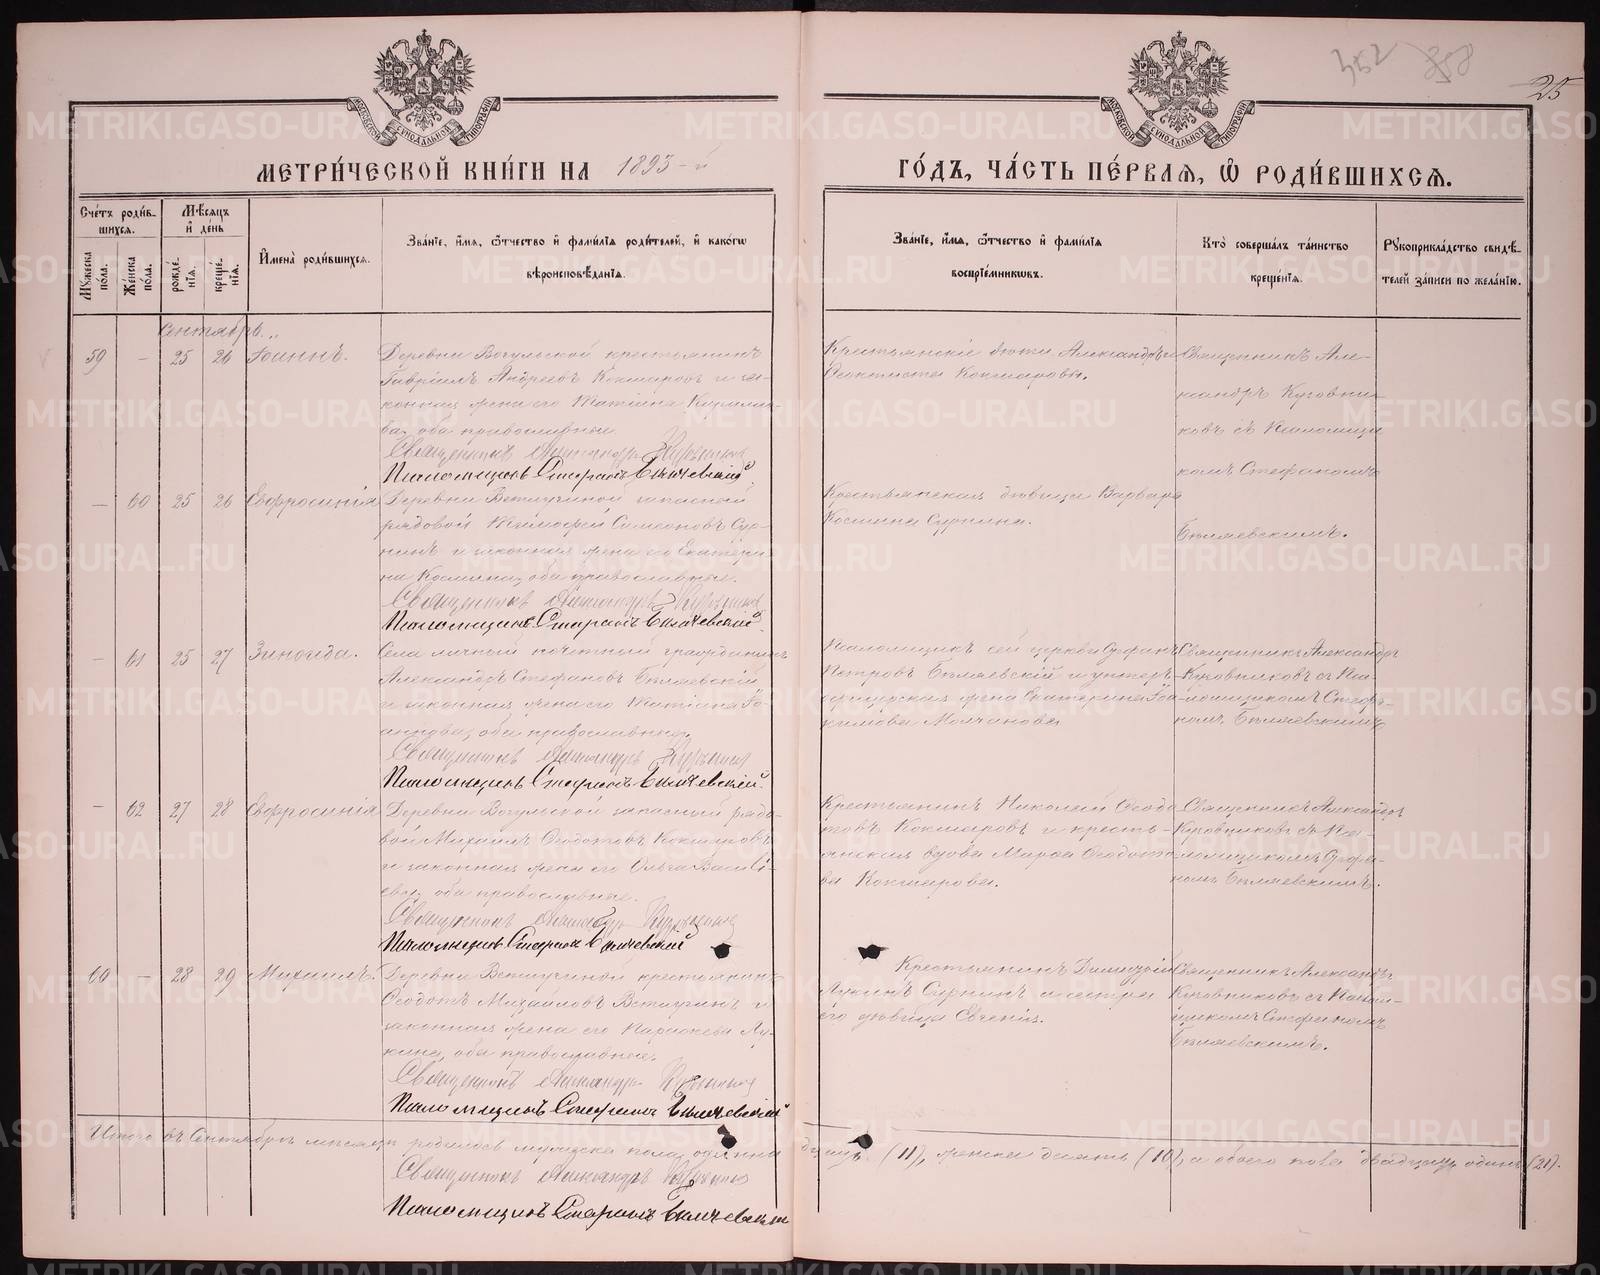 352 858
25
МЕТРИ́ЧЕСКОЙ КНИ́ГИ НА 1893-й
ГО́ДЪ, ЧА́СТЬ ПЕ́РВАѦ, Ѽ РОДИ́ВШИХСѦ.
Сче́тъ роди́в-
шихсѧ.
Мѣ́сѧцъ
и҆ де́нь
Мꙋ́жеска по́ла.
Же́нска по́ла.
рожде́нїѧ.
креще́нїѧ.
И҆мена̀ роди́вшихсѧ.
Зва́нїе, и҆́мѧ, ѻ҆́тчество и҆ фами́лїѧ роди́телей, и҆ како́гѡ
вѣроисповѣ́данїѧ.
Зва́нїе, и҆́мѧ, ѻ҆́тчество и҆ фами́лїѧ
воспрїе́мникѡвъ.
Кто̀ соверша́лъ та́инство
креще́нїѧ.
Рꙋкоприкла́дство свидѣ́-
телей за́писи по жела́нїю.
Сентябрь.
59 — 25 26 Іоаннъ.
Деревни Вогульской крестьянинъ
Гавріилъ Андреевъ Кокшаровъ и за-
конная жена его Татіана Кирило-
ва, оба православные
Священникъ Александръ
Псаломщикъ Стефанъ Бѣляевскій
Крестьянскіе дѣти Александръ и
Феоктиста Кокшаровы.
Священникъ Але-
ксандръ Куровни-
ковъ съ Псаломщи
комъ Стефаномъ
Бѣляевскимъ.
— 60 25 26 Евфросинія
Деревни Ветлугиной запасной
рядовой Тимофей Симеоновъ Сур-
нинъ и законная жена его Екатери-
на Косьмина, оба православные.
Священникъ Александръ
Псаломщикъ Стефанъ Бѣляевскій
Крестьянская дѣвица Варвара
Косьмина Сурнина.
— 61 25 27 Зиновида.
Села личный почетный гражданинъ
Александръ Стефановъ Бѣляевскій
и законная жена его Татіана Іо-
аннова, оба православные.
Священникъ Александръ
Псаломщикъ Стефанъ Бѣляевскій
Псаломщикъ сей церкви Стефанъ
Петровъ Бѣляевскій и унтеръ-
офицерская жена Екатерина Іоа-
кимова Молчанова
Священникъ Александръ
Куровниковъ съ Пса-
ломщикомъ Стефа-
номъ Бѣляевскимъ.
— 62 27 28 Евфросинія
Деревни Вогульской запасный рядо-
вой Михаилъ Феодотовъ Кокшаровъ
и законная жена его Ольга Василі-
ева, оба православные.
Священникъ Александръ
Псаломщикъ Стефанъ Бѣляевскій
Крестьянинъ Николай Феодо
товъ Кокшаровъ и кресть-
янская вдова Марѳа Феодото-
ва Кокшарова.
Священникъ Александръ
Куровниковъ съ Пса-
ломщикомъ Стефа-
номъ Бѣляевскимъ.
60 — 28 29 Михаилъ.
Деревни Ветлугиной крестьянинъ
Феодотъ Михайловъ Ветлугинъ и
законная жена его Параскева Лу-
кина, оба православные.
Священникъ Александръ
Псаломщикъ Стефанъ Бѣляевскій
Крестьянинъ Димитрій
Лукинъ Сурнинъ и сестра
его дѣвица Евгенія.
Священникъ Александръ
Куровниковъ съ Псалом-
щикомъ Стефаномъ
Бѣляевскимъ.
Итого въ Сентябрѣ мѣсяцѣ родилось мужска пола одинна дцать (11), женска десять (10), а обоего пола двадцать одинъ (21).
Священникъ Александръ
Псаломщикъ Стефанъ Бѣляевскій
METRIKI.GASO-URAL.RU